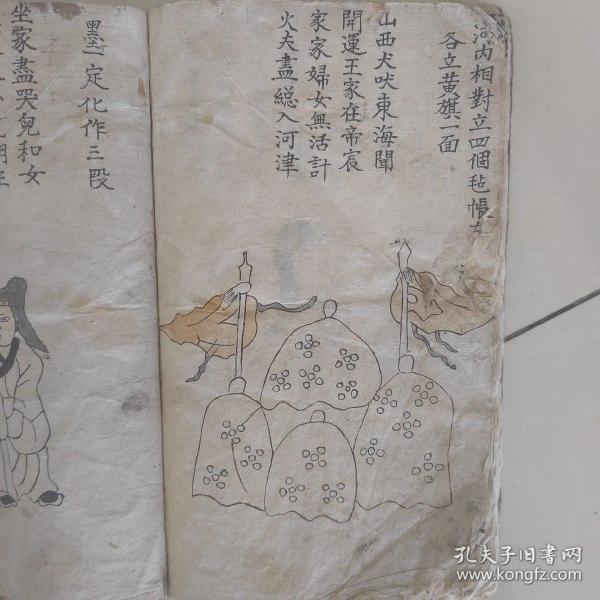 河内相對立四個毡帳左
各立黄旗一面
山西犬吠東海聞
開運王家在帝宸
家家婦女無活計
火夫盡総入河津
墨一定化作三段
坐家盡哭兒和女
孔夫子旧書网
www.kongfz.com